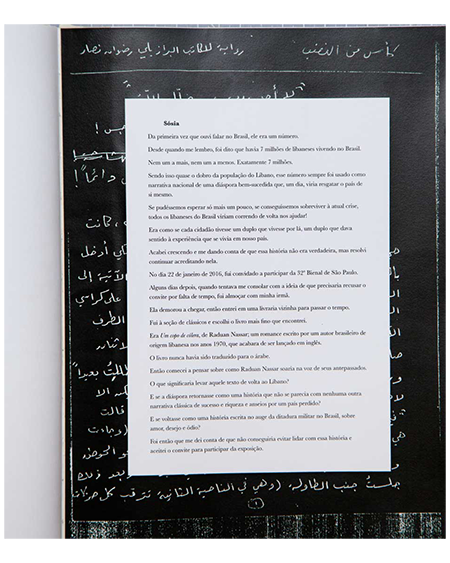 كأس من الغضب
رواية للكاتب البرازيلي رضوان نصار
Sósia
Da primeira vez que ouvi falar no Brasil, ele era um número.
Desde quando me lembro, foi dito que havia 7 milhões de libaneses vivendo no Brasil.
Nem um a mais, nem um a menos. Exatamente 7 milhões.
Sendo isso quase o dobro da população do Líbano, esse número sempre foi usado como
narrativa nacional de uma diáspora bem-sucedida que, um dia, viria resgatar o país de
si mesmo.
Se pudéssemos esperar só mais um pouco, se conseguíssemos sobreviver à atual crise,
todos os libaneses do Brasil viriam correndo de volta nos ajudar!
Era como se cada cidadão tivesse um duplo que vivesse por lá, um duplo que dava
sentido à experiência que se vivia em nosso país.
Acabei crescendo e me dando conta de que essa história não era verdadeira, mas resolvi
continuar acreditando nela.
No dia 22 de janeiro de 2016, fui convidado a participar da 32ª Bienal de São Paulo.
Alguns dias depois, quando tentava me consolar com a ideia de que precisaria recusar o
convite por falta de tempo, fui almoçar com minha irmã.
Ela demorou a chegar, então entrei em uma livraria vizinha para passar o tempo.
Fui à seção de clássicos e escolhi o livro mais fino que encontrei.
Era Um copo de cólera, de Raduan Nassar; um romance escrito por um autor brasileiro de
origem libanesa nos anos 1970, que acabara de ser lançado em inglês.
O livro nunca havia sido traduzido para o árabe.
Então comecei a pensar sobre como Raduan Nassar soaria na voz de seus antepassados.
O que significaria levar aquele texto de volta ao Líbano?
E se a diáspora retornasse como uma história que não se parecia com nenhuma outra
narrativa clássica de sucesso e riqueza e amores por um país perdido?
E se voltasse como uma história escrita no auge da ditadura militar no Brasil, sobre
amor, desejo e ódio?
Foi então que me dei conta de que não conseguiria evitar lidar com essa história e
aceitei o convite para participar da exposição.
جلستُ جنب الطاولة (وهي في الناحية الثانية تترقب كل حركات